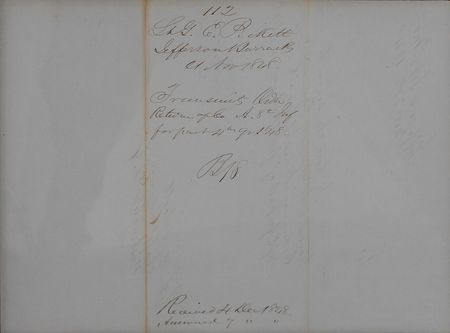 112
Lt G. E. Pickett
Jefferson Barracks
21 Nov 1848.
Transmits
Return of Co A. 8th Inf
for part 4th qr 1848.
Received 4 Dec 1848.
Answered 7 " "